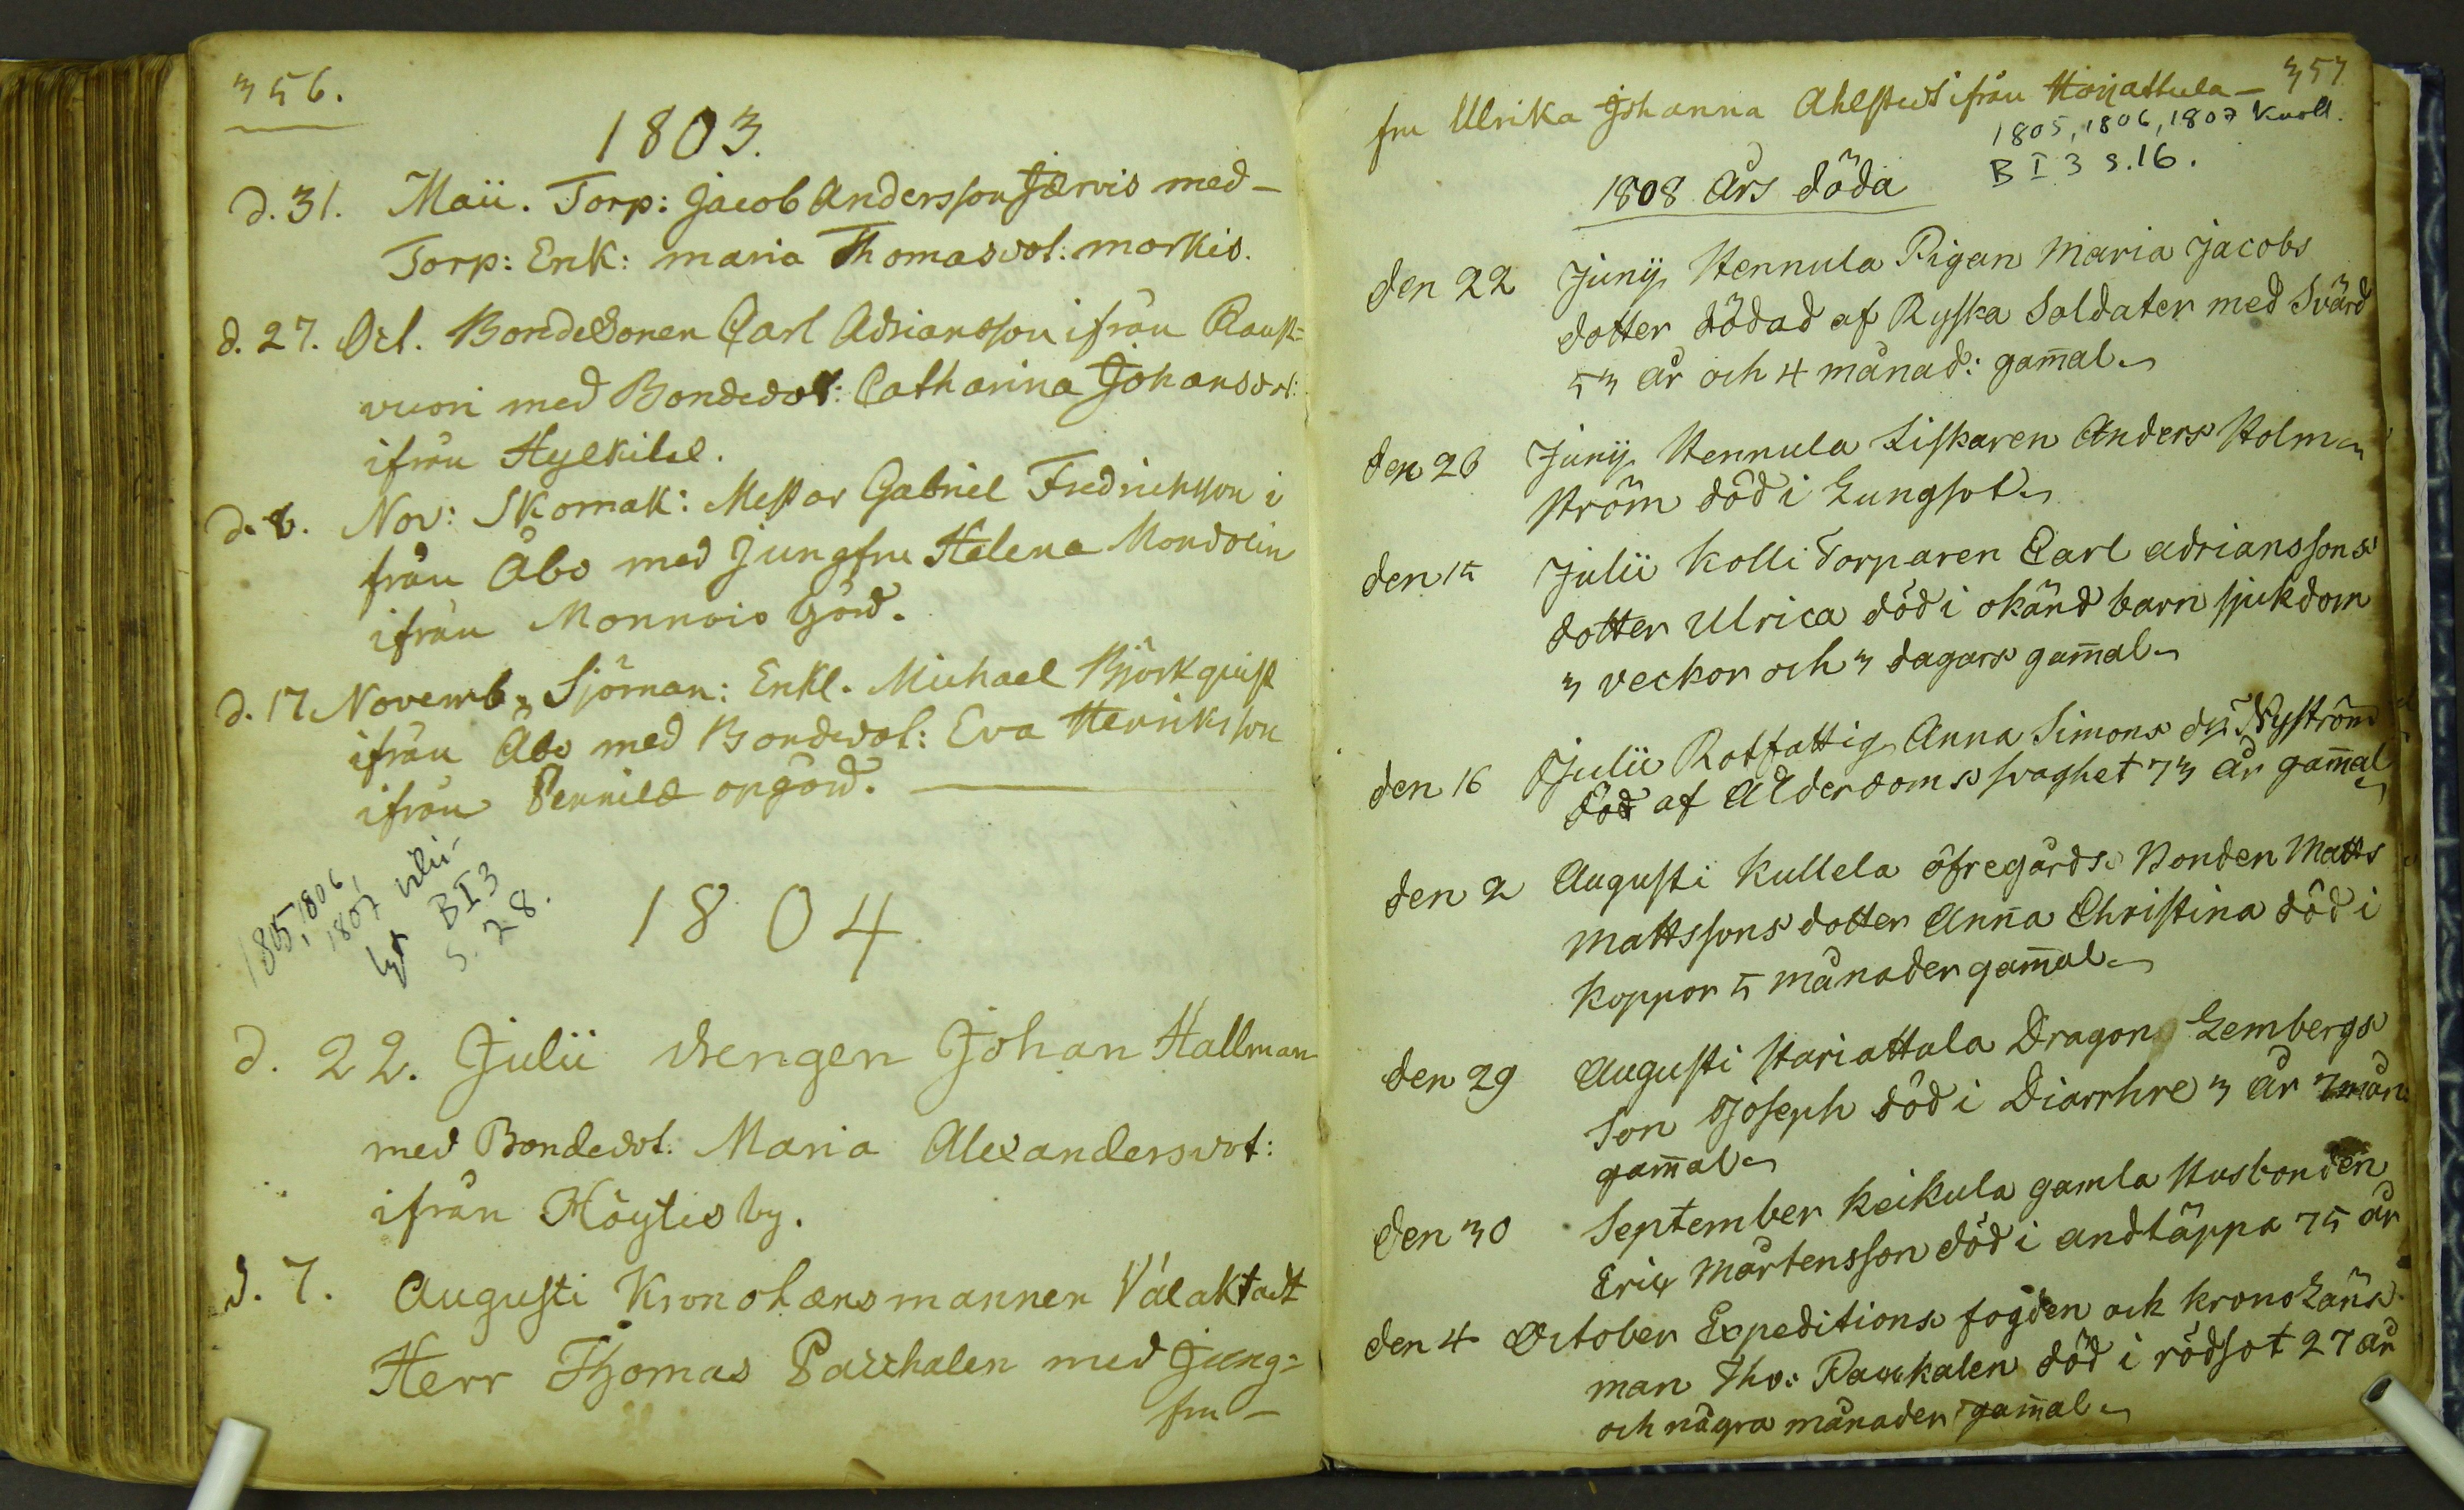 356.
1803.
d. 31. Maii. Torp: Jacob Andersson Järvis med -
Torp: Enk: maria Thomasdot: morkis.
d. 27. Oct. Bondesonen Carl Adriansson ifrån Raust=
vuori med Bondedot: Catharina Johansdot:
ifrån Hylkilä.
d. 8. Nov: Skomak: Mestar Gabriel Fredrichsson i
från Åbo med Jungfru Helena Mondolin
ifrån Monnois Gård.
d. 17 Novemb: Sjöman: Enkl. Michael Björkquist
ifrån Åbo med Bondedot: Eva Henriksson
ifrån Pennilä opgård.
1805, 1806,
1807 vihi-
tyt BI3
s. 28.
1804
d. 22. Julii drengen Johan Hallman
med Bondedot: Maria Alexandersdot:
ifrån Höytis by.
d. 7. Augusti Kronolänsmannen Välaktadt
Herr Thomas Pacchalen med Jung=
fru -
357
fru Ulrika Johanna Ahlstedt ifrån Harjattula -
1805, 1806, 1807 kuoll.
B I 3 s. 16.
1808 Års döda
den 22 Junij Hennula Pigan Maria Jacobs
dotter dödad af Ryska Soldater med Svärd
53 år och 4 månad: gam̄al
den 26 Junij Hennula Fiskaren Anders Holm
ström död i Lungsot
den 15 Julii Kolli Torparen Carl adrianssons
dotter Ulrica död i okänd barn sjukdom
3 veckor och 3 dagars gam̄al
den 16 Julii Rotfattig Anna Simons dr Nyström
död af Alderdoms svaghet 73 år gam̄al
den 2 Augusti Kullela öfregårds Bonden Matts
Mattssons dotter Anna Christina död i
Koppor 5 månader gam̄al
den 29 Augusti Hariattula Dragon Lembergs
son Joseph död i Diarrhre 3 år 7 mån:
gam̄al
den 30 September Keikula gamla Husbonden
Eric Mårtensson död i andtäppa 75 år
den 4 October Expeditions fogden och kronoläns
man Tho: Packalen död i rödsot 27 år
och några månader gam̄al